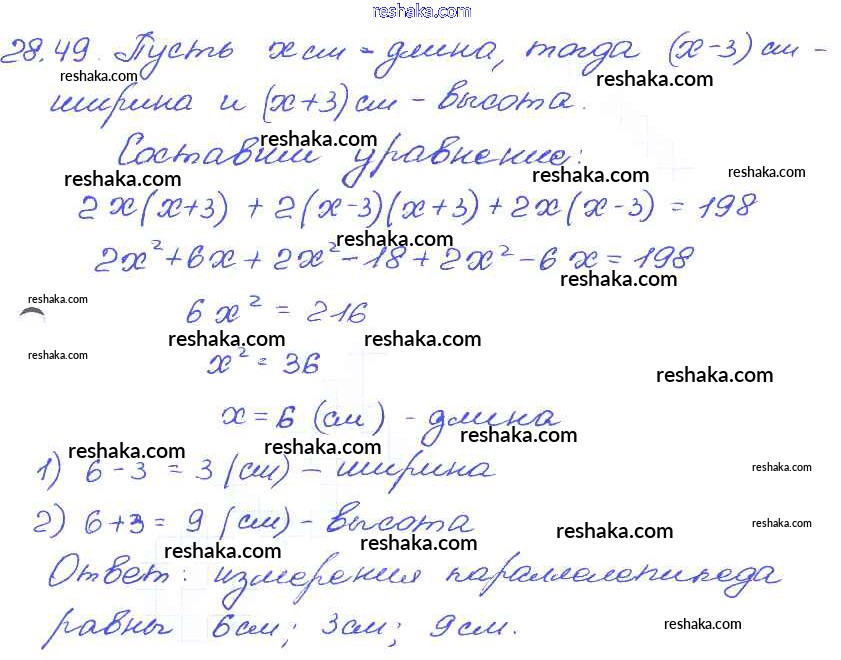 reshaka.com
28.49. Пусть x см - длина, тогда (x-3) см -
reshaka.com reshaka.com
ширина и (x+3) см - высота.
reshaka.com
Составим уравнение:
reshaka.com reshaka.com reshaka.com
2x(x+3) + 2(x-3)(x+3) + 2x(x-3) = 198
reshaka.com
2x² + 6x + 2x² - 18 + 2x² - 6x = 198
reshaka.com
reshaka.com
6x² = 216
reshaka.com reshaka.com
reshaka.com
x² = 36
reshaka.com
x = 6 (см) - длина
reshaka.com reshaka.com reshaka.com
1) 6 - 3 = 3 (см) - ширина
reshaka.com
2) 6 + 3 = 9 (см) - высота
reshaka.com reshaka.com
reshaka.com reshaka.com
Ответ: измерения параллелепипеда
равны 6 см; 3 см; 9 см.
reshaka.com